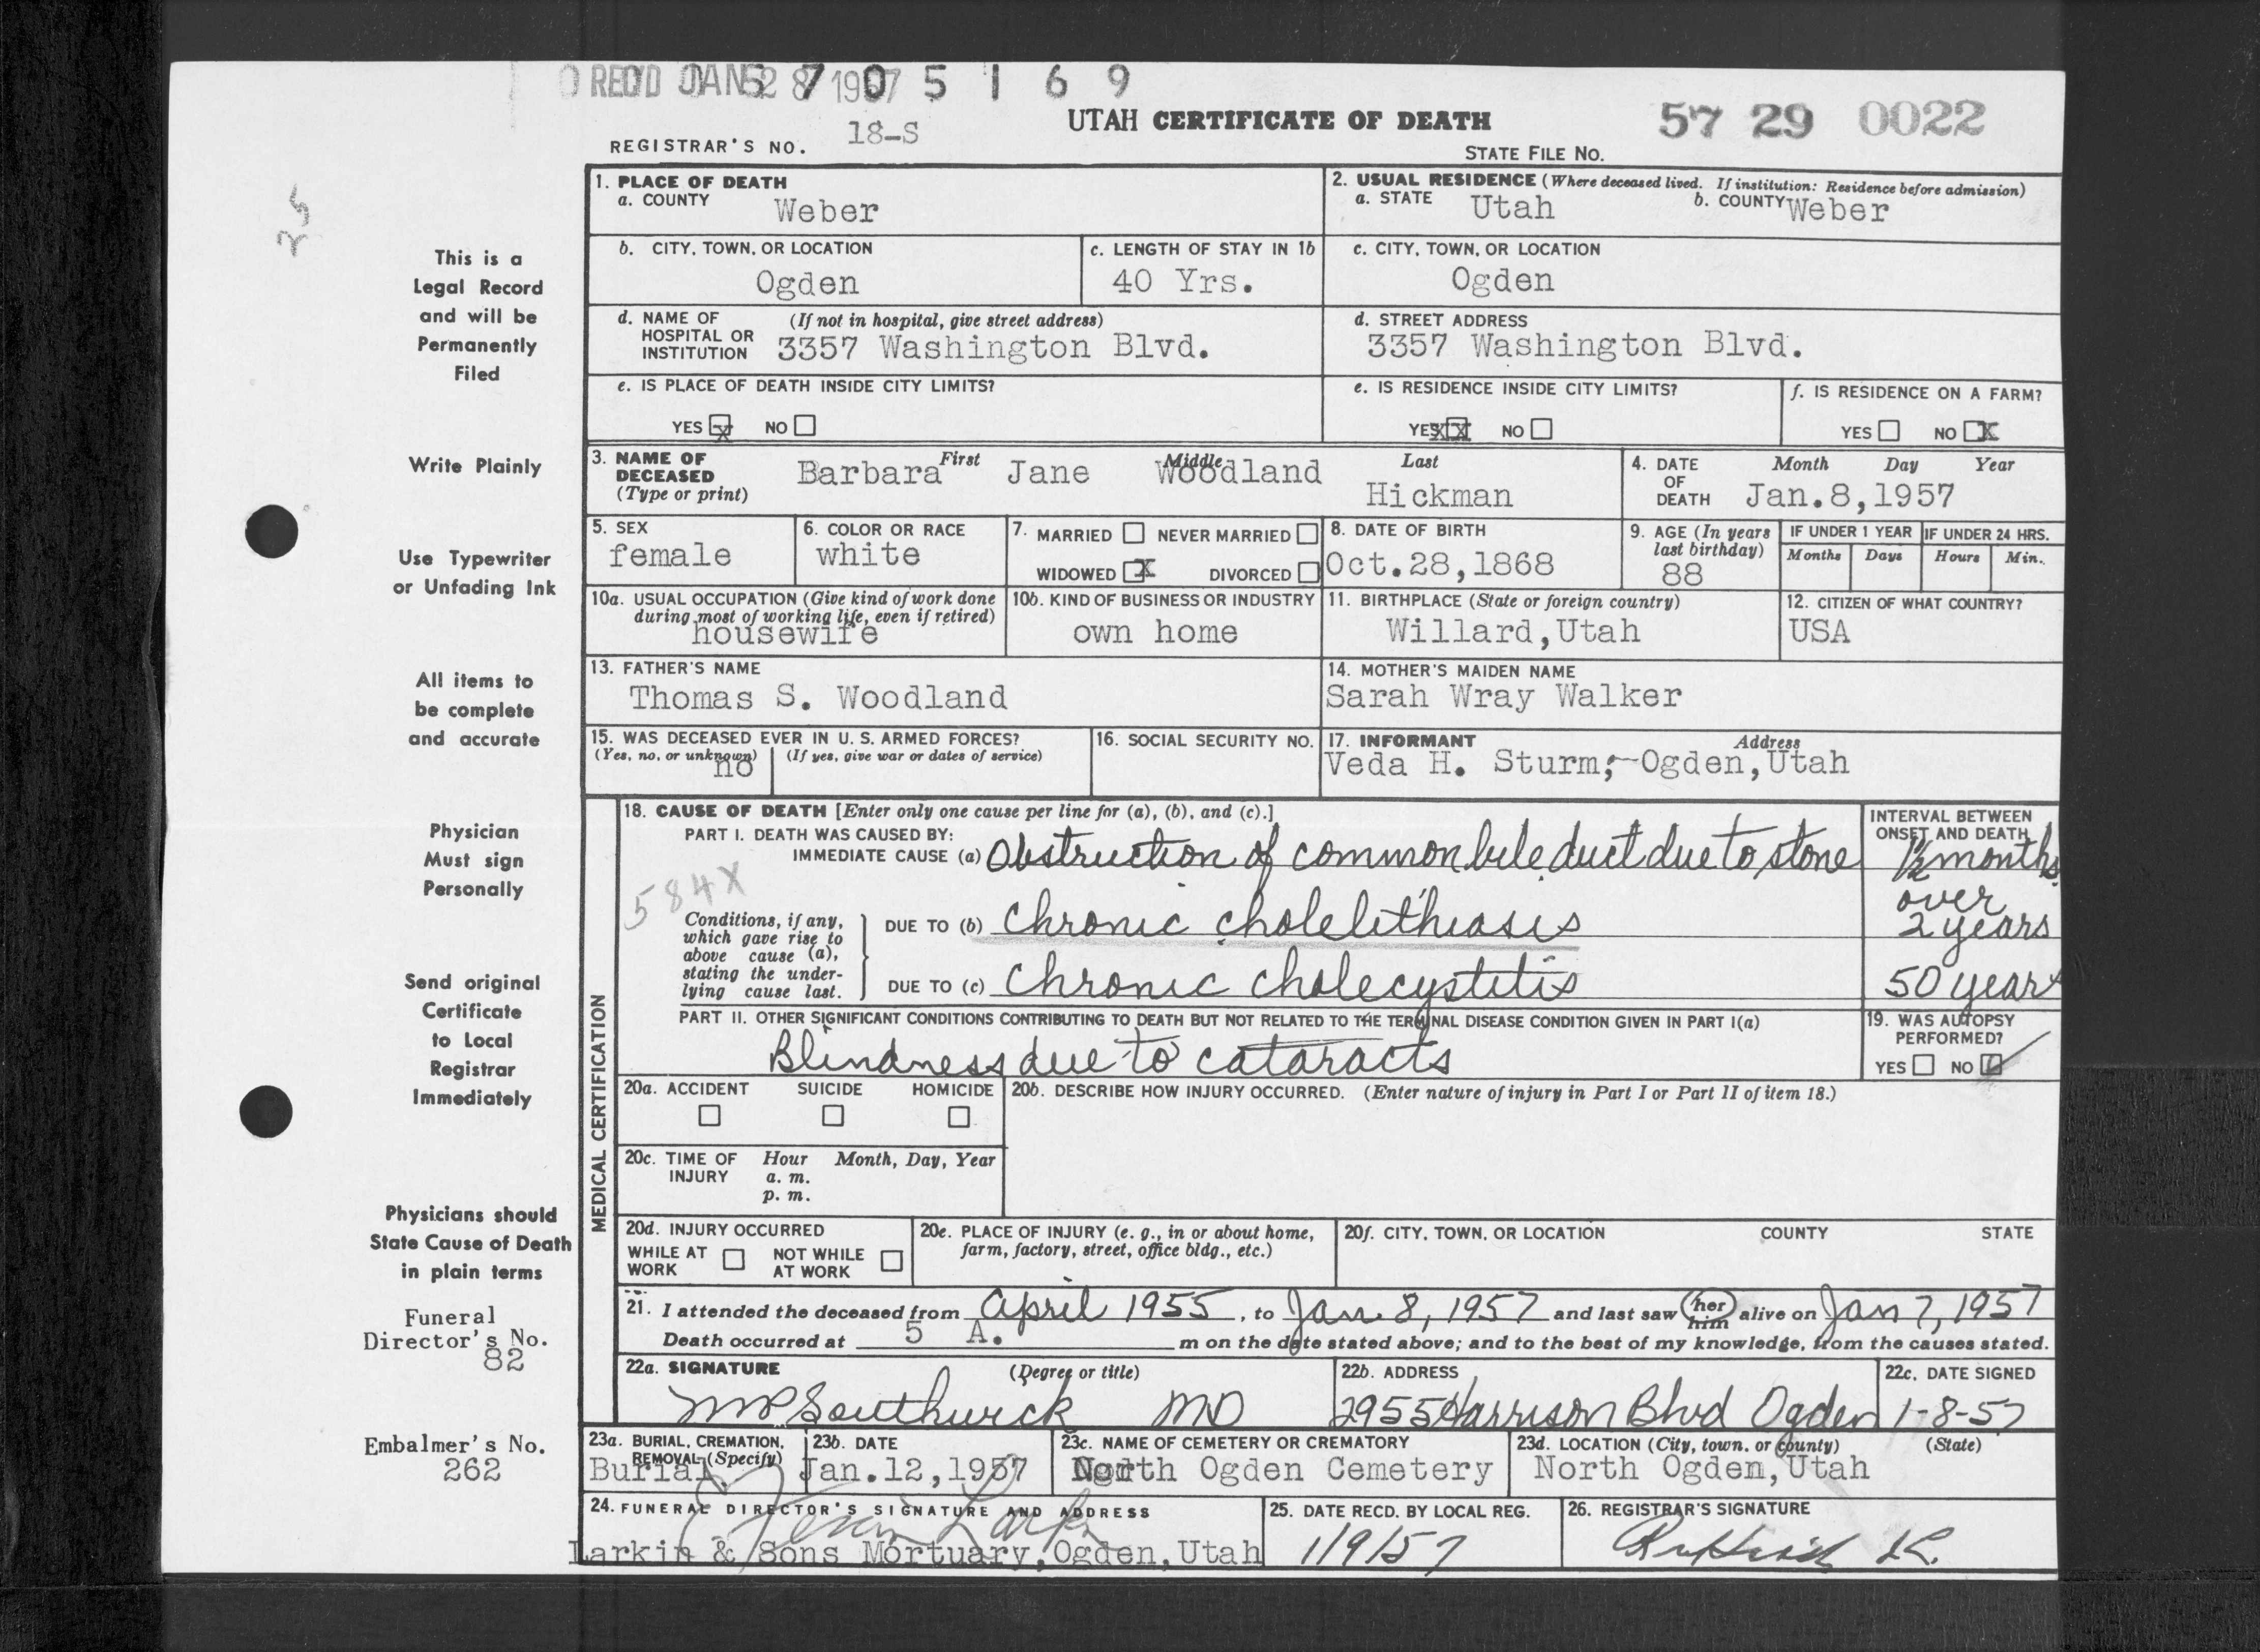 REC'D JAN 28 1957
57 05169
UTAH CERTIFICATE OF DEATH
57 29 0022
REGISTRAR'S NO. 18-S
STATE FILE NO.
25
1. PLACE OF DEATH
a. COUNTY Weber
2. USUAL RESIDENCE (Where deceased lived. If institution: Residence before admission)
a. STATE Utah b. COUNTY Weber
b. CITY, TOWN, OR LOCATION
Ogden
c. LENGTH OF STAY IN 1b
40 Yrs.
c. CITY, TOWN, OR LOCATION
Ogden
d. NAME OF HOSPITAL OR INSTITUTION (If not in hospital, give street address)
3357 Washington Blvd.
d. STREET ADDRESS
3357 Washington Blvd.
e. IS PLACE OF DEATH INSIDE CITY LIMITS?
YES X NO
e. IS RESIDENCE INSIDE CITY LIMITS?
YES XX NO
f. IS RESIDENCE ON A FARM?
YES NO X
3. NAME OF DECEASED (Type or print)
First Middle Last
Barbara Jane Woodland Hickman
4. DATE OF DEATH Month Day Year
Jan.8,1957
5. SEX
female
6. COLOR OR RACE
white
7. MARRIED NEVER MARRIED
WIDOWED X DIVORCED
8. DATE OF BIRTH
Oct.28,1868
9. AGE (In years last birthday)
88
IF UNDER 1 YEAR IF UNDER 24 HRS.
Months Days Hours Min.
10a. USUAL OCCUPATION (Give kind of work done during most of working life, even if retired)
housewife
10b. KIND OF BUSINESS OR INDUSTRY
own home
11. BIRTHPLACE (State or foreign country)
Willard,Utah
12. CITIZEN OF WHAT COUNTRY?
USA
13. FATHER'S NAME
Thomas S. Woodland
14. MOTHER'S MAIDEN NAME
Sarah Wray Walker
15. WAS DECEASED EVER IN U. S. ARMED FORCES?
(Yes, no, or unknown) (If yes, give war or dates of service)
no
16. SOCIAL SECURITY NO.
17. INFORMANT Address
Veda H. Sturm;-Ogden,Utah
MEDICAL CERTIFICATION
18. CAUSE OF DEATH [Enter only one cause per line for (a), (b), and (c).]
INTERVAL BETWEEN ONSET AND DEATH
PART I. DEATH WAS CAUSED BY:
IMMEDIATE CAUSE (a) Obstruction of common bile duct due to stone 1½ months
584X
Conditions, if any, which gave rise to above cause (a), stating the underlying cause last.
DUE TO (b) Chronic cholelithiasis over 2 years
DUE TO (c) Chronic cholecystitis 50 years
PART II. OTHER SIGNIFICANT CONDITIONS CONTRIBUTING TO DEATH BUT NOT RELATED TO THE TERMINAL DISEASE CONDITION GIVEN IN PART I(a)
Blindness due to cataracts
19. WAS AUTOPSY PERFORMED?
YES NO
20a. ACCIDENT SUICIDE HOMICIDE
20b. DESCRIBE HOW INJURY OCCURRED. (Enter nature of injury in Part I or Part II of item 18.)
20c. TIME OF INJURY Hour Month, Day, Year
a. m.
p. m.
20d. INJURY OCCURRED
WHILE AT WORK NOT WHILE AT WORK
20e. PLACE OF INJURY (e. g., in or about home, farm, factory, street, office bldg., etc.)
20f. CITY, TOWN, OR LOCATION COUNTY STATE
21. I attended the deceased from April 1955, to Jan. 8, 1957 and last saw her him alive on Jan 7, 1957
Death occurred at 5 A. m on the date stated above; and to the best of my knowledge, from the causes stated.
22a. SIGNATURE (Degree or title)
MP Southwick MD
22b. ADDRESS
2955 Harrison Blvd Ogden
22c. DATE SIGNED
1-8-57
23a. BURIAL, CREMATION, REMOVAL (Specify)
Burial
23b. DATE
Jan.12,1957
23c. NAME OF CEMETERY OR CREMATORY
North Ogden Cemetery
23d. LOCATION (City, town, or county) (State)
North Ogden,Utah
24. FUNERAL DIRECTOR'S SIGNATURE AND ADDRESS
Larkin & Sons Mortuary,Ogden,Utah
25. DATE RECD. BY LOCAL REG.
1/9/57
26. REGISTRAR'S SIGNATURE
This is a
Legal Record
and will be
Permanently
Filed
Write Plainly
Use Typewriter
or Unfading Ink
All items to
be complete
and accurate
Physician
Must sign
Personally
Send original
Certificate
to Local
Registrar
Immediately
Physicians should
State Cause of Death
in plain terms
Funeral
Director's No.
82
Embalmer's No.
262